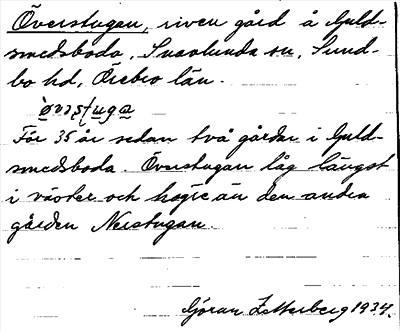 Överstugan, riven gård å Guld-
smedsboda, Snavlunda sn, Sund-
bo hd, Örebro län.
ö̀vəstuga
För 35 år sedan två gårdar i Guld-
smedsboda. Överstugan låg längst
i väster och högre än den andra
gården Nerstugan.
Göran Zetterberg 1934.